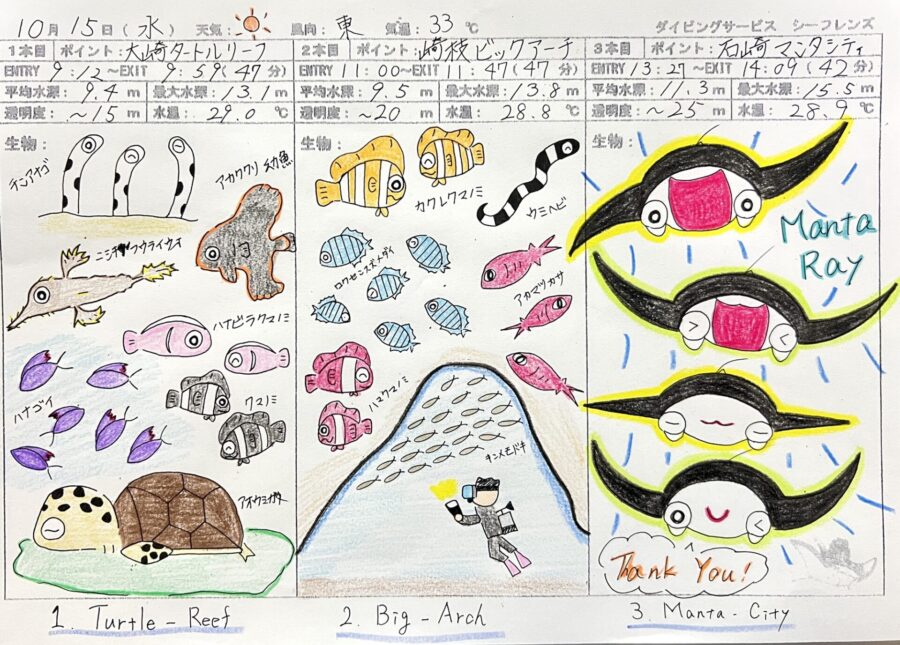 10月15日(水) 天気: 風向:東 気温:33℃ ダイビングサービス シーフレンズ
1本目 ポイント:大崎タートルリーフ
ENTRY 9:12～EXIT 9:59(47分)
平均水深:9.4m 最大水深:13.1m
透明度:～15m 水温:29.0℃
生物:
チンアナゴ
アカククリ幼魚
ニシキフウライウオ
ハナビラクマノミ
ハナゴイ
クマノミ
アオウミガメ
1. Turtle-Reef
2本目 ポイント:崎枝ビックアーチ
ENTRY 11:00～EXIT 11:47(47分)
平均水深:9.5m 最大水深:13.8m
透明度:～20m 水温:28.8℃
生物:
カクレクマノミ
ウミヘビ
ロクセンスズメダイ
アカマツカサ
ハマクマノミ
キンメモドキ
2. Big-Arch
3本目 ポイント:石崎マンタシティ
ENTRY 13:27～EXIT 14:09(42分)
平均水深:11.3m 最大水深:15.5m
透明度:～25m 水温:28.9℃
生物:
Manta
Ray
Thank You!
3. Manta-City